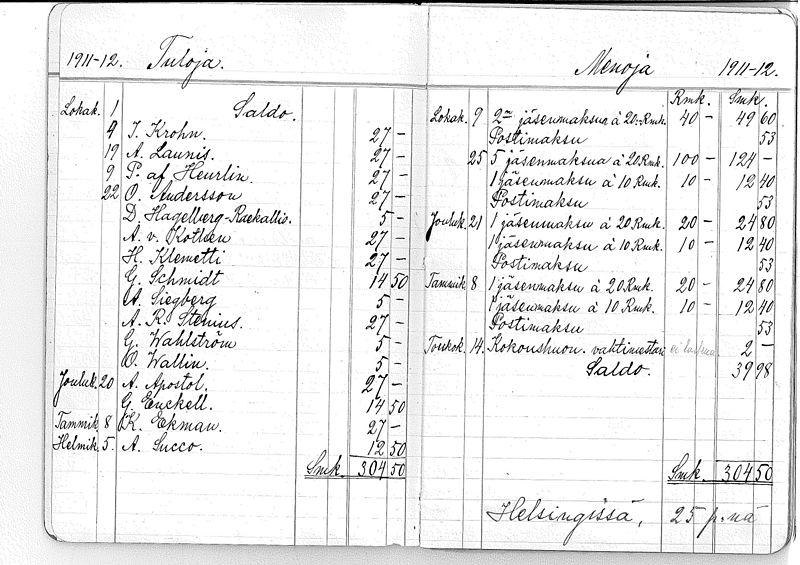 1911-12. Tuloja.
Lokak. 1 Saldo.
9 I. Krohn. 27 —
19 A. Launis. 27 —
9 P. af Heurlin. 27 —
22 O. Andersson 27 —
D. Hagelberg-Raekallio. 5 —
A. v. Kothen 27 —
H. Klemetti 27 —
G. Schmidt 14 50
A. Siegberg 5 —
A. R. Stenius. 27 —
G. Wahlström 5 —
O. Wallin. 5 —
Jouluk. 20 A. Apostol. 27 —
G. Enckell. 14 50
Tammik. 8 K. Ekman. 27 —
Helmik. 5. A. Succo. 12 50
Smk. 304 50
Menoja 1911-12.
Rmk. Smk.
Lokak. 9 2 jäsenmaksua à 20 Rmk. 40 — 49 60
Postimaksu 53
25 5 jäsenmaksua à 20 Rmk. 100 — 124 —
1 jäsenmaksu à 10 Rmk. 10 — 12 40
Postimaksu 53
Jouluk. 21 1 jäsenmaksu à 20 Rmk. 20 — 24 80
1 jäsenmaksu à 10 Rmk. 10 — 12 40
Postimaksu 53
Tammik. 8 1 jäsenmaksu à 20 Rmk. 20 — 24 80
1 jäsenmaksu à 10 Rmk. 10 — 12 40
Postimaksu 53
Toukok. 14. Kokoushuon. vahtimestari 2 —
Saldo. 39 98
Smk. 304 50
Helsingissä, 25 p:nä